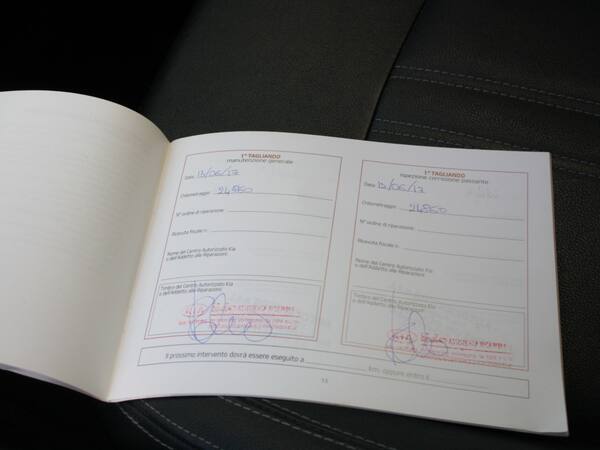 1° TAGLIANDO
manutenzione generale
Data
Chilometraggio 24850
N° ordine di riparazione
Ricevuta fiscale n.
Nome del Centro Autorizzato Kia
o dell'Addetto alle Riparazioni
Timbro del Centro Autorizzato Kia
o dell'Addetto alle Riparazioni
1° TAGLIANDO
ispezione corrosione passante
Data
Chilometraggio 24850
N° ordine di riparazione
Ricevuta fiscale n.
Nome del Centro Autorizzato Kia
o dell'Addetto alle Riparazioni
Timbro del Centro Autorizzato Kia
o dell'Addetto alle Riparazioni
Il prossimo intervento dovrà essere eseguito a km. oppure entro il